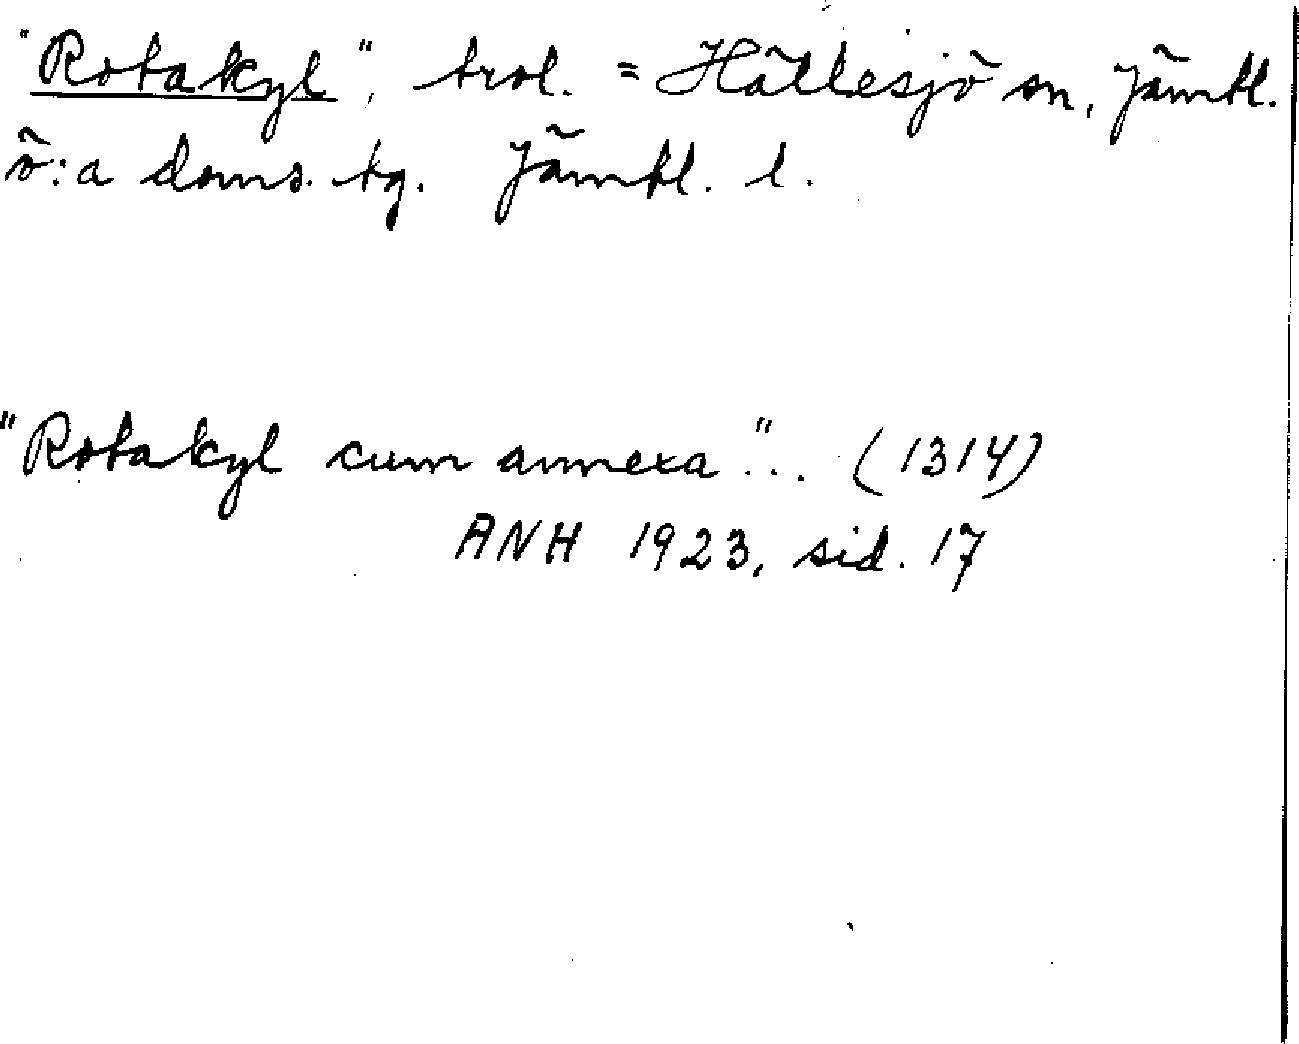 "Rotakyl", trol. = Hällesjö sn, Jämtl.
ö:a doms. tg. Jämtl. l.
"Rotakyl cum annexa"... (1314)
ANH 1923, sid. 17